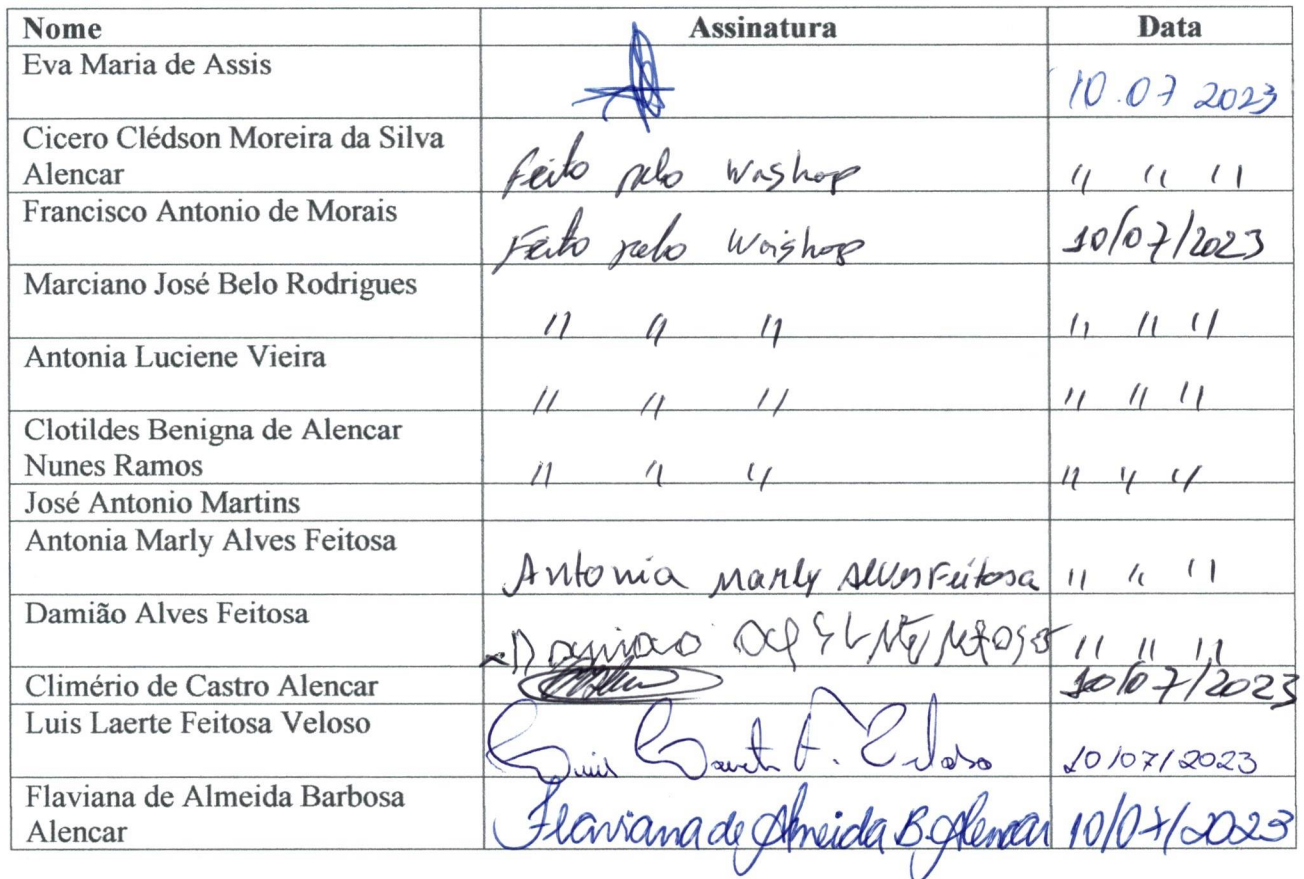 Nome Assinatura Data
Eva Maria de Assis 10.07 2023
Cicero Clédson Moreira da Silva
Alencar Feito pelo Washop " " "
Francisco Antonio de Morais Feito pelo Waishop 10/07/2023
Marciano José Belo Rodrigues " " " " " "
Antonia Luciene Vieira " " " " " "
Clotildes Benigna de Alencar
Nunes Ramos " " " " " "
José Antonio Martins
Antonia Marly Alves Feitosa Antonia Marly Alves Feitosa " " "
Damião Alves Feitosa " " "
Climério de Castro Alencar 10/07/2023
Luis Laerte Feitosa Veloso Luis Laerte F. Veloso 10/07/2023
Flaviana de Almeida Barbosa
Alencar Flaviana de Almeida B. Alencar 10/07/2023